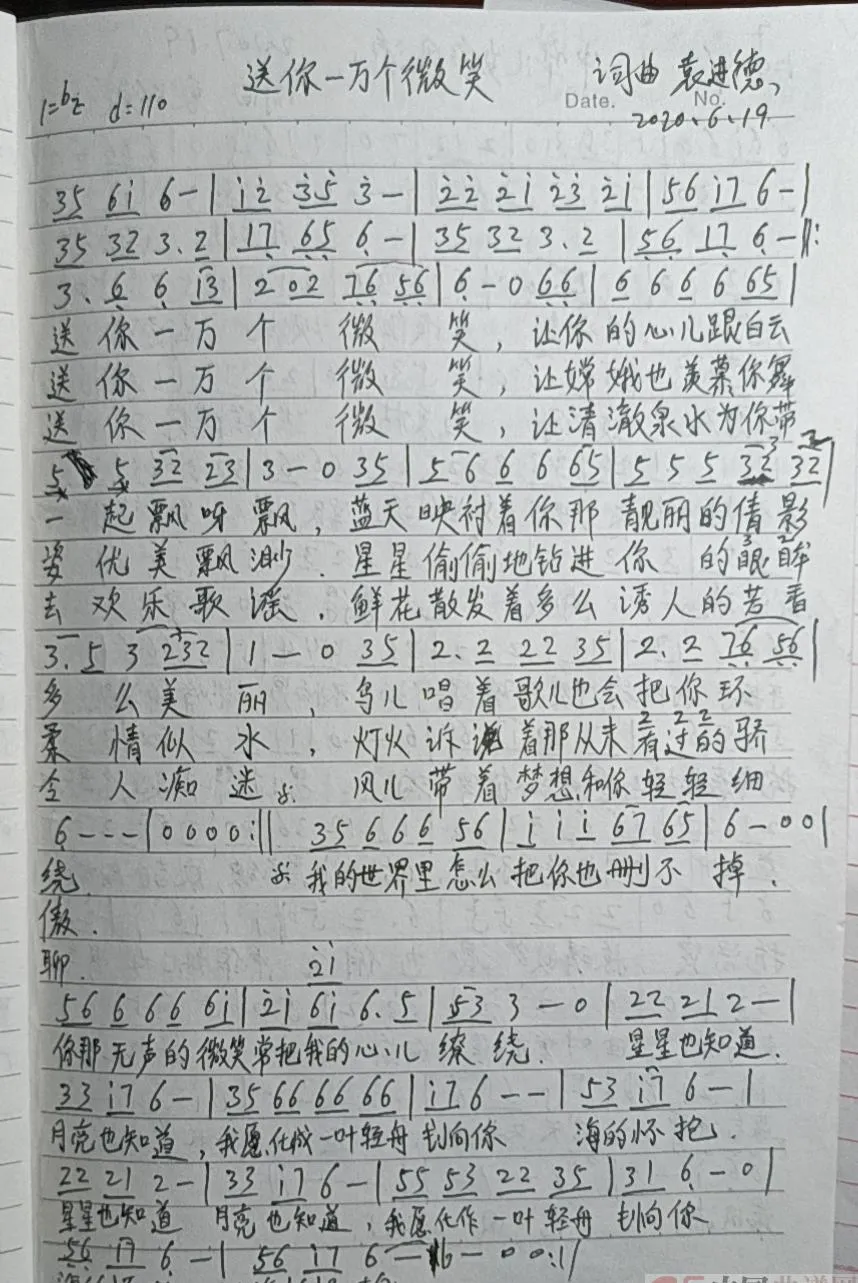 送你一万个微笑 词曲 袁进德、
1=bE d=110 Date. No.
2020.6.19
35 61̇ 6-|1̇2̇ 3̇5̇ 3̇-|2̇2̇ 2̇1̇ 2̇3̇ 2̇1̇|56 1̇7 6-|
35 32 3.2|17̣ 6̣5̣ 6̣-|35 32 3.2|5̣6̣ 17̣ 6̣-‖:
3.6̣ 6̣ 13|2 02 7̣6̣ 5̣6̣|6̣-0 6̣6̣|6 6 6 6 65|
送你一万个 微 笑，让你的心儿跟白云
送你一万个 微 笑，让嫦娥也羡慕你舞
送你一万个 微 笑，让清澈泉水为你带
5 5 32 23|3-0 35|56 6 6 65|5 5 5 32 32|
一起飘呀飘，蓝天映衬着你那靓丽的倩影
姿优美飘渺．星星偷偷地钻进你 的眼眸
去欢乐歌谣．鲜花散发着多么诱人的
3.5 3 232|1-0 35|2.2 22 35|2.2 7̣6̣ 5̣6̣|
多么美丽，鸟儿唱着歌儿也会把你环
柔情似水，灯火诉说着那从来有过的骄
令人痴迷 风儿带着梦想和你轻轻细
6---|0 0 0 0:‖ 35 6 6 6 56|1̇ 1̇ 1̇ 67 65|6-00|
绕． 我的世界里怎么把你也删不掉．
傲．
聊． 2̇1̇
56 6 6 6 61̇|2̇1̇ 61̇ 6.5|53 3-0|22 21 2-|
你那无声的微笑常把我的心儿缭绕． 星星也知道．
33 1̇7 6-|35 66 66 66|1̇7 6--|53 1̇7 6-|
月亮也知道，我愿化成一叶轻舟划向你 海的怀抱．
22 21 2-|33 1̇7 6-|55 53 22 35|31 6̣-0|
星星也知道 月亮也知道，我愿化作一叶轻舟 划向你
5̣6̣ 17̣ 6̣-|56 1̇7 6-|6-00:‖